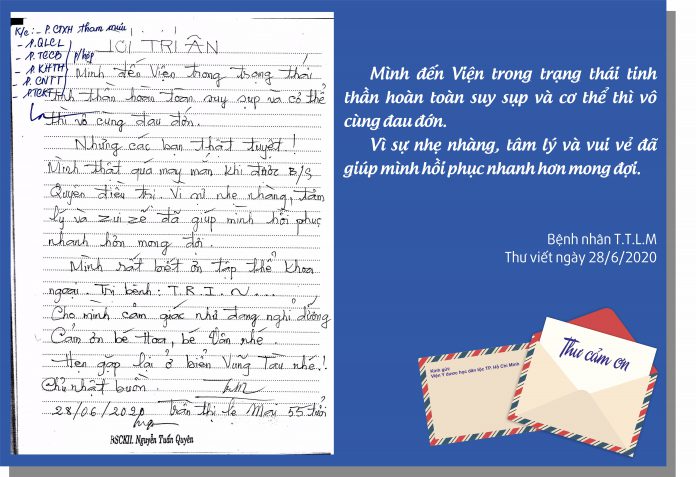 K/c: - P. CTXH tham mưu
- P. QLCL
- P. TCCB p/hợp
- P. KHTH
- P. CNTT
- P. TCKT
LỜI TRI ÂN
Mình đến Viện trong trạng thái
tinh thần hoàn toàn suy sụp và cơ thể
thì vô cùng đau đớn.
Nhưng các bạn thật tuyệt!
Mình thật quá may mắn khi được B/S
Quyên điều trị. Vì sự nhẹ nhàng, tâm
lý và zui zẻ đã giúp mình hồi phục
nhanh hơn mong đợi.
Mình rất biết ơn tập thể khoa
ngoại. Trị bệnh: T.R.I.~...
Cho mình cảm giác như đang nghỉ dưỡng
Cảm ơn bé Hoa, bé Vân nhé.
Hẹn gặp lại ở biển Vũng Tàu nhé!
Chủ nhật buồn.
28/06/2020 Trần Thị Lệ Mai 55 tuổi
BSCKII. Nguyễn Tuấn Quyên
Mình đến Viện trong trạng thái tinh
thần hoàn toàn suy sụp và cơ thể thì vô
cùng đau đớn.
Vì sự nhẹ nhàng, tâm lý và vui vẻ đã
giúp mình hồi phục nhanh hơn mong đợi.
Bệnh nhân T.T.L.M
Thư viết ngày 28/6/2020
Thư cảm ơn
Kính gửi:
Viện Y dược học dân tộc TP. Hồ Chí Minh